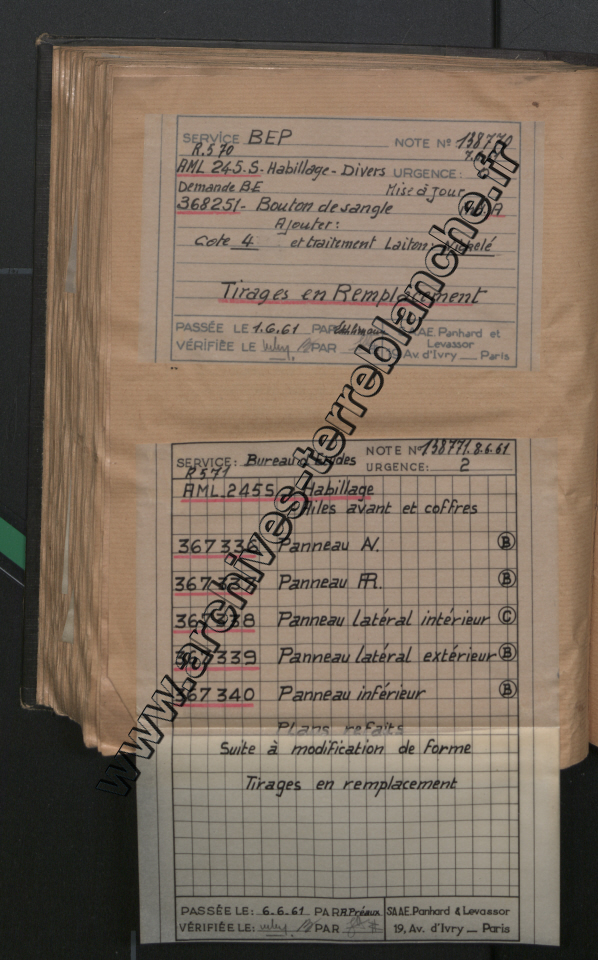 SERVICE BEP NOTE Nº 138770
R.570
AML 245.S - Habillage - Divers URGENCE:
Demande B.E Mise à Jour
368251 - Bouton de sangle
Ajouter:
Cote 4 et traitement Laiton: Nickelé
Tirages en Remplacement
PASSÉE LE 1.6.61 PAR SAAE Panhard et
Levassor
VÉRIFIÉE LE PAR 19, Av. d'Ivry __ Paris
SERVICE: Bureau d'Etudes NOTE Nº 138771. 8.6.61
R571 URGENCE: 2
AML.245S Habillage
Ailes avant et coffres
367336 Panneau AV. B
367337 Panneau AR. B
367338 Panneau latéral intérieur C
367339 Panneau latéral extérieur B
367340 Panneau inférieur B
Plans refaits
Suite à modification de forme
Tirages en remplacement
PASSÉE LE: 6.6.61 PAR R.Préaux SAAE. Panhard & Levassor
VÉRIFIÉE LE: PAR 19, Av. d'Ivry __ Paris
www.archives-terreblanche.fr